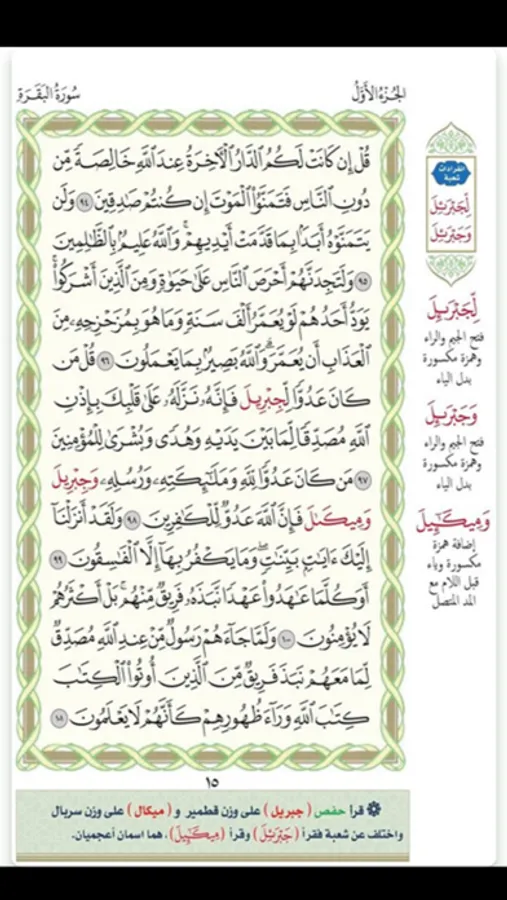 الجزء الأول
سورة البقرة
قُلْ إِن كَانَتْ لَكُمُ ٱلدَّارُ ٱلْأَخِرَةُ عِندَ ٱللَّهِ خَالِصَةً مِّن
دُونِ ٱلنَّاسِ فَتَمَنَّوُاْ ٱلْمَوْتَ إِن كُنتُمْ صَٰدِقِينَ ٩٤ وَلَن
يَتَمَنَّوْهُ أَبَدَۢا بِمَا قَدَّمَتْ أَيْدِيهِمْۚ وَٱللَّهُ عَلِيمُۢ بِٱلظَّٰلِمِينَ
٩٥ وَلَتَجِدَنَّهُمْ أَحْرَصَ ٱلنَّاسِ عَلَىٰ حَيَوٰةٍ وَمِنَ ٱلَّذِينَ أَشْرَكُواْۚ
يَوَدُّ أَحَدُهُمْ لَوْ يُعَمَّرُ أَلْفَ سَنَةٍ وَمَا هُوَ بِمُزَحْزِحِهِۦ مِنَ
ٱلْعَذَابِ أَن يُعَمَّرَۗ وَٱللَّهُ بَصِيرُۢ بِمَا يَعْمَلُونَ ٩٦ قُلْ مَن
كَانَ عَدُوّٗا لِّجِبْرِيلَ فَإِنَّهُۥ نَزَّلَهُۥ عَلَىٰ قَلْبِكَ بِإِذْنِ
ٱللَّهِ مُصَدِّقٗا لِّمَا بَيْنَ يَدَيْهِ وَهُدٗى وَبُشْرَىٰ لِلْمُؤْمِنِينَ
٩٧ مَن كَانَ عَدُوّٗا لِّلَّهِ وَمَلَٰٓئِكَتِهِۦ وَرُسُلِهِۦ وَجِبْرِيلَ
وَمِيكَىٰلَ فَإِنَّ ٱللَّهَ عَدُوّٞ لِّلْكَٰفِرِينَ ٩٨ وَلَقَدْ أَنزَلْنَآ
إِلَيْكَ ءَايَٰتِۭ بَيِّنَٰتٖۖ وَمَا يَكْفُرُ بِهَآ إِلَّا ٱلْفَٰسِقُونَ ٩٩
أَوَكُلَّمَا عَٰهَدُواْ عَهْدٗا نَّبَذَهُۥ فَرِيقٞ مِّنْهُمۚ بَلْ أَكْثَرُهُمْ
لَا يُؤْمِنُونَ ١٠٠ وَلَمَّا جَآءَهُمْ رَسُولٞ مِّنْ عِندِ ٱللَّهِ مُصَدِّقٞ
لِّمَا مَعَهُمْ نَبَذَ فَرِيقٞ مِّنَ ٱلَّذِينَ أُوتُواْ ٱلْكِتَٰبَ
كِتَٰبَ ٱللَّهِ وَرَآءَ ظُهُورِهِمْ كَأَنَّهُمْ لَا يَعْلَمُونَ ١٠١
شعبة
لِّجَبْرَئِيلَ
وَجَبْرَئِيلَ
لِّجَبْرَئِيلَ
فتح الجيم والراء
وهمزة مكسورة
بدل الياء
وَجَبْرَئِيلَ
فتح الجيم والراء
وهمزة مكسورة
بدل الياء
وَمِيكَٰٓئِيلَ
إضافة همزة
مكسورة وياء
قبل اللام مع
المد المتصل
١٥
قرأ حفص ( جبريل ) على وزن قطمير و ( ميكال ) على وزن سربال
واختلف عن شعبة فقرأ ( جَبْرَئِيلَ ) وقرأ ( مِيكَٰٓئِيلَ ) ، هما اسمان أعجميان.